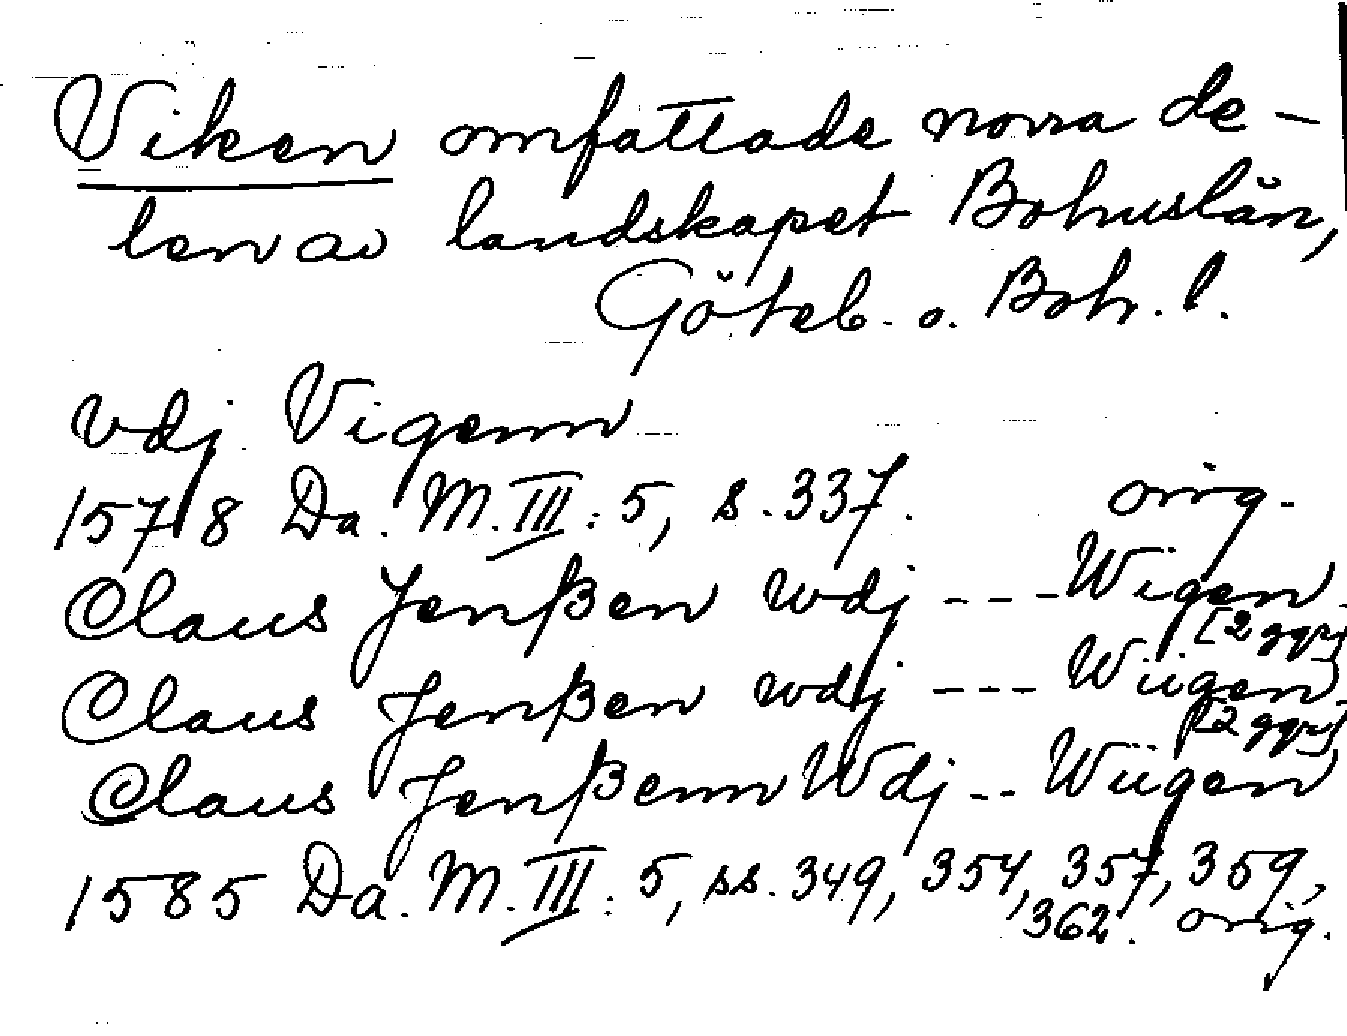 Viken omfattade norra de-
len av landskapet Bohuslän,
Göteb. o. Boh. l.
vdj Vigenn
1578 Da. M. III: 5, s. 337. orig.
Claus Jenßen wdj --- Wigen
[2 ggr]
Claus Jenßen wdj --- Wiigen
[2 ggr]
Claus Jenßenn Wdj -- Wiigen
1585 Da. M. III: 5, ss. 349, 354, 357, 359,
362. orig.